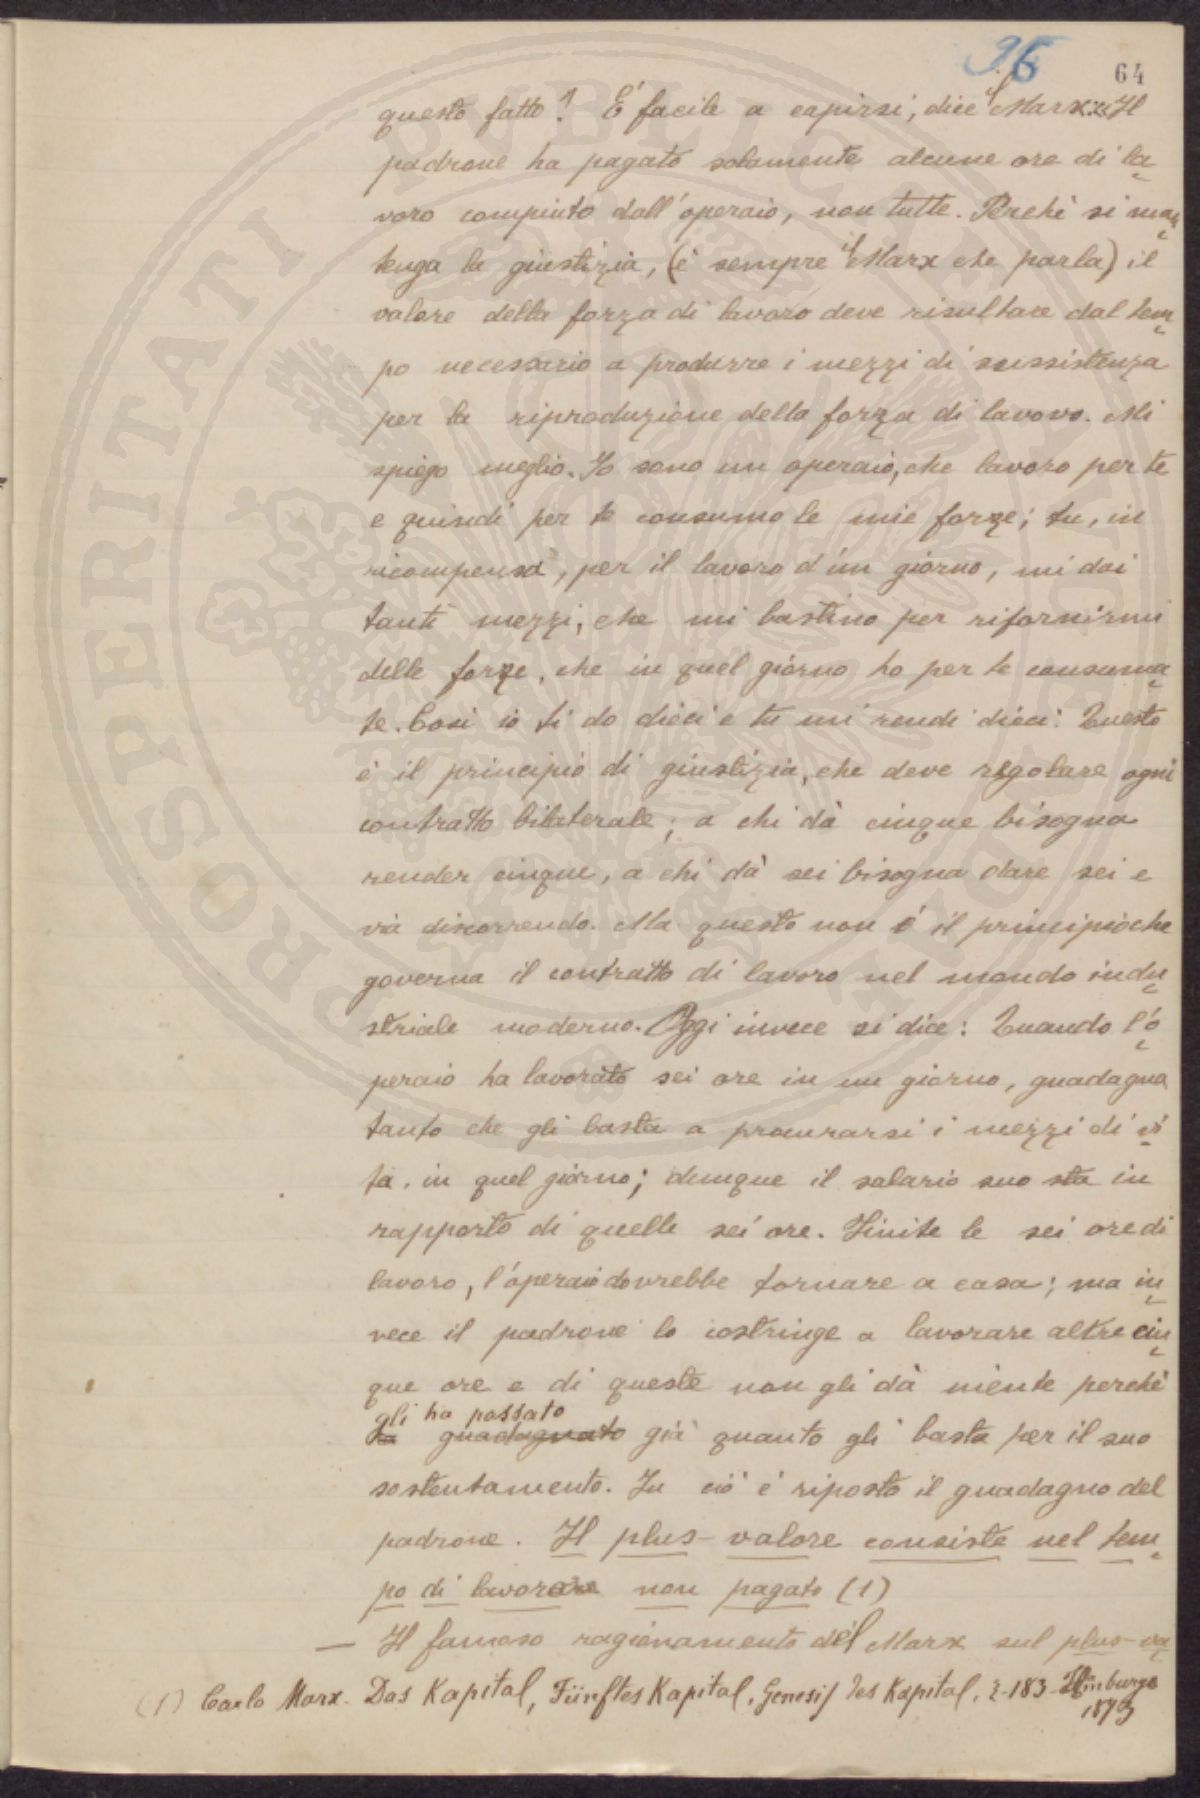 96 64
questo fatto? É facile a capirsi, dice il Marx. Il
padrone ha pagato solamente alcune ore di la
voro compiuto dall'operaio, non tutte. Perchè si man
tenga la giustizia, (è sempre il Marx che parla) il
valore della forza di lavoro deve risultare dal tem
po necessario a produrre i mezzi di sussistenza
per la riproduzione della forza di lavovo. Mi
spiego meglio. Io sono un operaio, che lavoro per te
e quindi per te consumo le mie forze; tu, in
ricompensa, per il lavoro d'un giorno, mi dai
tanti mezzi, che mi bastino per rifornirmi
delle forze, che in quel giorno ho per te consuma
te. Così io ti do dieci e tu mi rendi dieci: Questo
è il principio di giustizia, che deve regolare ogni
contratto bilaterale; a chi dà cinque bisogna
render cinque, a chi dà sei bisogna dare sei e
via discorrendo. Ma questo non é il principio che
governa il contratto di lavoro nel mondo indu
striale moderno. Oggi invece si dice: Quando l'o
peraio ha lavorato sei ore in un giorno, guadagna
tanto che gli basta a procurarsi i mezzi di vi
ta, in quel giorno; dunque il salario suo sta in
rapporto di quelle sei ore. Finite le sei ore di
lavoro, l'operaio dovrebbe tornare a casa; ma in
vece il padrone lo costringe a lavorare altre cin
que ore e di queste non gli dà niente perchè
gli ha passato
ha guadagnato già quanto gli basta per il suo
sostentamento. In ciò è riposto il guadagno del
padrone. Il plus-valore consiste nel tem
po di lavoro non pagato (1)
— Il famoso ragionamento del Marx sul plus-va
(1) Carlo Marx. Das Kapital, Fünftes Kapital, Genesis des Kapital, 183 - 1873
PROSPERITATI PUBLICAE